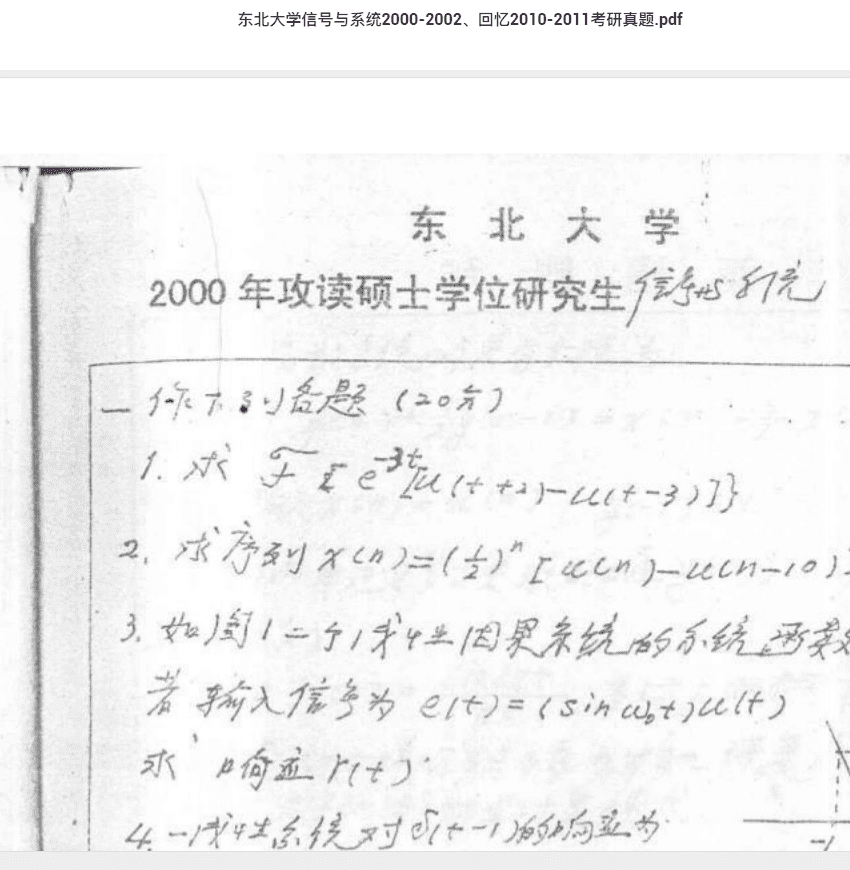 东北大学信号与系统2000-2002、回忆2010-2011考研真题.pdf
东 北 大 学
2000 年攻读硕士学位研究生 信号与系统
一 作下列各题 (20分)
1. 求 ℱ{e^{-3t}[u(t+2)-u(t-3)]}
2. 求序列 x(n)=(1/2)^n [u(n)-u(n-10)]
3. 如图1一个线性因果系统的系统函数
若输入信号为 e(t)=(sin ω₀t)u(t)
求 响应 r(t)
4. 一线性系统对 δ(t-1)的响应为
-1